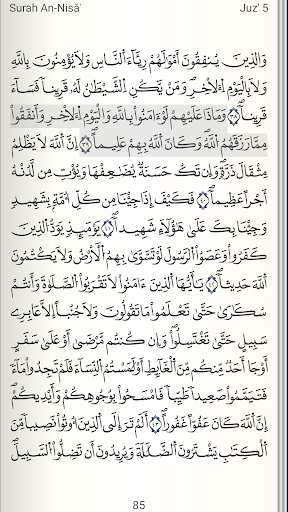 Surah An-Nisā'
Juz' 5
وَالَّذِينَ يُنفِقُونَ أَمْوَٰلَهُمْ رِئَآءَ ٱلنَّاسِ وَلَا يُؤْمِنُونَ بِٱللَّهِ
وَلَا بِٱلْيَوْمِ ٱلْأَخِرِ ۗ وَمَن يَكُنِ ٱلشَّيْطَٰنُ لَهُۥ قَرِينًا فَسَآءَ
قَرِينًا ٣٨ وَمَاذَا عَلَيْهِمْ لَوْ ءَامَنُوا۟ بِٱللَّهِ وَٱلْيَوْمِ ٱلْأَخِرِ وَأَنفَقُوا۟
مِمَّا رَزَقَهُمُ ٱللَّهُ ۚ وَكَانَ ٱللَّهُ بِهِمْ عَلِيمًا ٣٩ إِنَّ ٱللَّهَ لَا يَظْلِمُ
مِثْقَالَ ذَرَّةٍ ۖ وَإِن تَكُ حَسَنَةً يُضَٰعِفْهَا وَيُؤْتِ مِن لَّدُنْهُ
أَجْرًا عَظِيمًا ٤٠ فَكَيْفَ إِذَا جِئْنَا مِن كُلِّ أُمَّةٍۭ بِشَهِيدٍ
وَجِئْنَا بِكَ عَلَىٰ هَٰٓؤُلَآءِ شَهِيدًا ٤١ يَوْمَئِذٍ يَوَدُّ ٱلَّذِينَ
كَفَرُوا۟ وَعَصَوُا۟ ٱلرَّسُولَ لَوْ تُسَوَّىٰ بِهِمُ ٱلْأَرْضُ وَلَا يَكْتُمُونَ
ٱللَّهَ حَدِيثًا ٤٢ يَٰٓأَيُّهَا ٱلَّذِينَ ءَامَنُوا۟ لَا تَقْرَبُوا۟ ٱلصَّلَوٰةَ وَأَنتُمْ
سُكَٰرَىٰ حَتَّىٰ تَعْلَمُوا۟ مَا تَقُولُونَ وَلَا جُنُبًا إِلَّا عَابِرِى
سَبِيلٍ حَتَّىٰ تَغْتَسِلُوا۟ ۚ وَإِن كُنتُم مَّرْضَىٰٓ أَوْ عَلَىٰ سَفَرٍ
أَوْ جَآءَ أَحَدٌ مِّنكُم مِّنَ ٱلْغَآئِطِ أَوْ لَٰمَسْتُمُ ٱلنِّسَآءَ فَلَمْ تَجِدُوا۟ مَآءً
فَتَيَمَّمُوا۟ صَعِيدًا طَيِّبًا فَٱمْسَحُوا۟ بِوُجُوهِكُمْ وَأَيْدِيكُمْ ۗ
إِنَّ ٱللَّهَ كَانَ عَفُوًّا غَفُورًا ٤٣ أَلَمْ تَرَ إِلَى ٱلَّذِينَ أُوتُوا۟ نَصِيبًا مِّنَ
ٱلْكِتَٰبِ يَشْتَرُونَ ٱلضَّلَٰلَةَ وَيُرِيدُونَ أَن تَضِلُّوا۟ ٱلسَّبِيلَ
85